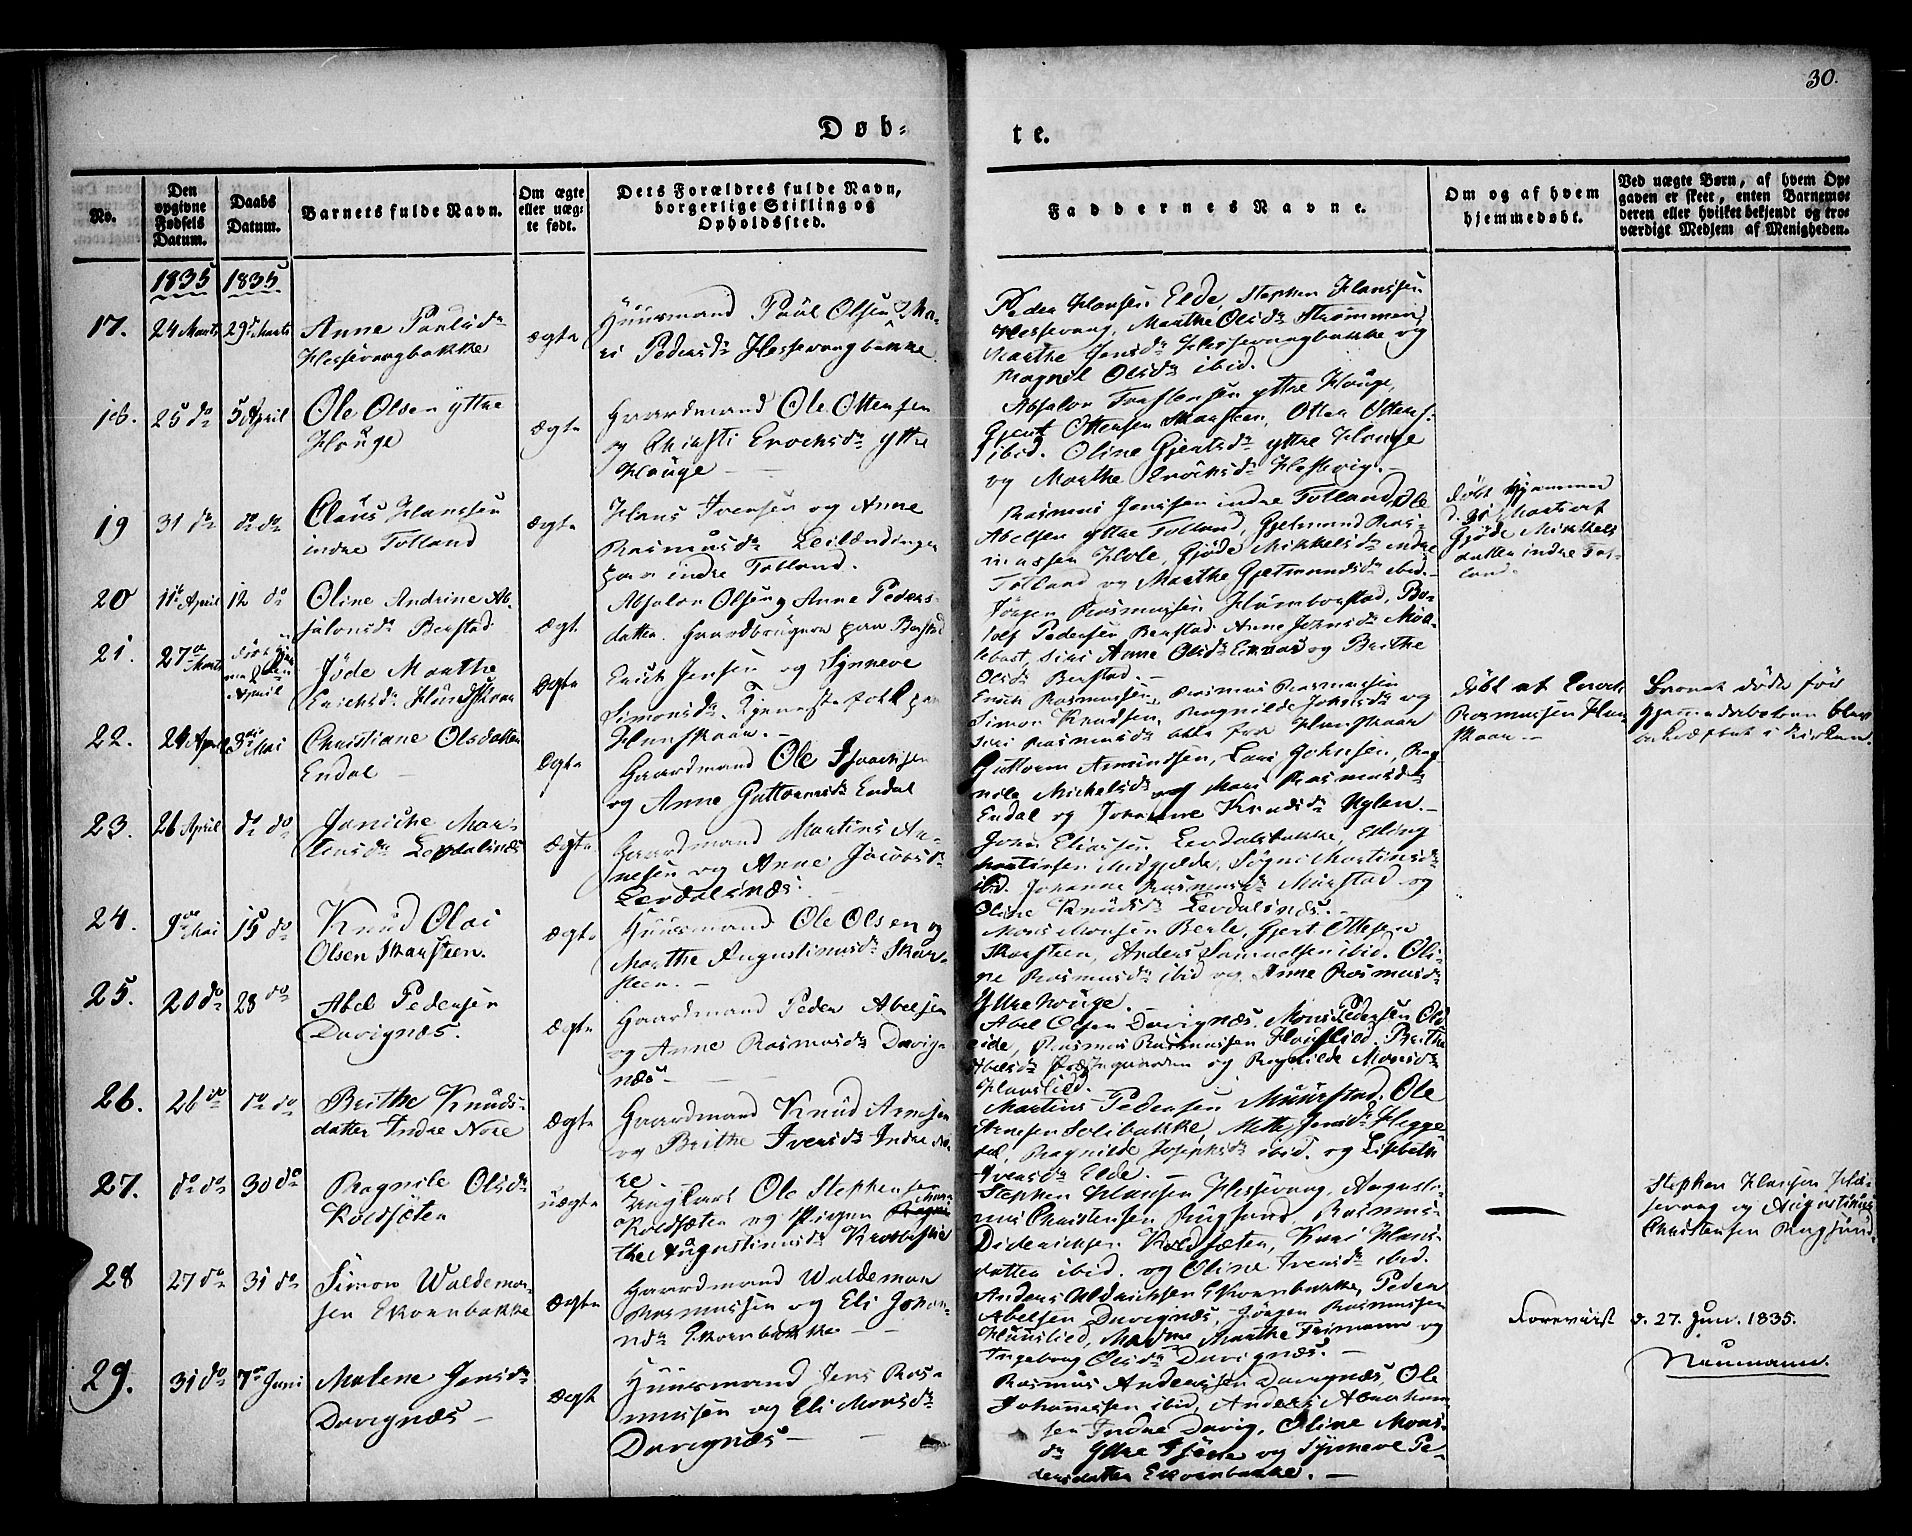 30.
Døb-
te.
No.
Den opgivne Fødsels Datum.
Daabs Datum.
Barnets fulde Navn.
Om ægte eller uægte født.
Dets Forældres fulde Navn, borgerlige Stilling og Opholdssted.
Faddernes Navne.
Om og af hvem hjemmedøbt.
Ved uægte Børn, af hvem Opgaven er skeet, enten Barnemoderen eller hvilket bekjendt og troværdigt Medlem af Menigheden.
1835 1835
17. 24 Marts 29d Marts
Anne Paulsdr
Hessevaagbakke
ægte
Huusmand Paul Olsen & Ma-
ri Pedersdr Hessevaagbakke.
Peder Hansen Elde, Stephen Hanssen
Hessevaag, Marthe Olsdr Strømmen,
Marthe Jensdr Hessevaagbakke og
Ragnil Olsdr ibid.
18. 25 do 5 April
Ole Olsen ytre
Houge
ægte
Gaardmand Ole Ottersen
og Christi Erochsdr ytre
Houge
Absalon ytre Houge,
Gjert Ottersen Skarsteen, Otter Otters.
ibid. Oline Gjertsdr ytre Houge
og Marthe Erochsdr Hestevig.
19 31 do do do
Claus Hanssen
indre Totland
ægte
Hans Iversen og Anne
Rasmusdr Leilændinger
paa indre Totland.
Rasmus Jonsen indre Totland, Ole
Abelsen ytre Totland, Gjelmund Ras-
mussen Hole, Gjøde Mikkelsdr indre
Totland og Marthe Gjelmundsdr ibid.
døbt hjemme
d. 31 Marts af
Gjøde Mikkels
datter indre Tot-
land.
20 11te April 12 do
Oline Andrine Ab-
salonsdr Berstad
ægt.
Absalon Olsen og Anne Peders-
datter. Gaardbrugere paa Berstad
Jørgen Rasmussen Humborstad, Bo-
tolf Pedersen Berstad, Anne Johnsdr Maa-
lebast, Siri Anne Olsdr Eknæs og Brithe
Olsdr Berstad.
21. 27de Marts
April
Jøde Marthe
Erichsdr Hundskaar
ægte
Erich Jensen og Synneve
Simonsdr. Tjenestefolk paa
Hunskaar.
Erich Rasmussen, Rasmus Rasmussen
Simon Knudsen, Ragnilde Johnsdr og
Siri Rasmusdr alle fra Hunskaar
døbt af Erich
Rasmussen Hun
skaar.
Barnet døde før
hjemmedaaben blev
bekræftet i Kirken.
22. 24 April 3die Mai
Christiane Olsdatter
Endal
ægte
Gaardmand Ole Isaachsen
og Anne Guttormsdr Endal
Guttorm Amundsen, Lars Johnsen, Rag-
nile Mickelsdr og Mari Rasmusdr
Endal og Johanne Knudsdr Nylen.
23. 26 April do do
Janiche Mar-
tensdr Levdalsnæs
ægte
Gaardmand Martins An-
nesen og Anne Jacobsdr
Levdalsnæs.
John Eliassen Levdalsbakke, Elling
Martinsen Midgjelde, Søgni Martinsdr
ibid. Johanne Rasmusdr Murstad og
Oline Knudsdr Levdalsnæs.
24. 9de Mai 15 do
Knud Olai
Olsen Skarsteen.
ægte
Huusmand Ole Olsen og
Marthe Augustinusdr Skar-
steen.
Mons Monsen Berle, Gjert Ottesen
Skarsteen, Anders Samuelsen ibid. Oli-
ne Rasmusdr ibid og Anne Rasmusdr
Yttre Houge.
25. 20 do 28 do
Abel Pedersen
Davignæs.
ægte
Gaardmand Peder Abelsen
og Anne Rasmusdr Davig-
næs
Abel Olsen Davignæs, Mons Pedersen Old
eide, Rasmus Rasmussen Hauslied. Brithe
Abelsdr Præstegaarden og Ragnilde Monsdr
Hauslied.
26. 26 do do do
Brithe Knuds-
datter Indre Nore
ægte
Gaardmand Knud Arnesen
og Brithe Iversdr Indre No-
re.
Martins Pedersen Muurstad, Ole
Arnesen Solibakke, Mette Jensdr Hegge
dal, Ragnilde Josephsdr ibid. og Lisbeth
Iversdr Elde.
27. do do 30 do
Ragnile Olsdr
Koldsæten
uægte
Ungkarl Ole Stephensen
Koldsæten og Pigen Mar-
the Augustinusdr Krosbakke
Stephen Hansen Hessevaag, Augusti-
nus Christensen Rugsund, Rasmus
Diderichsen Koldsæten, Kari Hans-
datter ibid. og Oline Iversdr ibid.
Stephen Hansen Hes-
sevaag og Augustinus
Christensen Rugsund.
28 27 do 31 do
Simon Waldemar-
sen Ekornbakke
ægte
Gaardmand Waldemar
Rasmussen og Eli Johan-
nesdr Ekornbakke
Anders Uldrichsen Ekornbakke, Peder
Abelsen Davignæs, Jørgen Rasmussen
Hunslied, Madme Marthe Friman og
Ingeborg Olsdr Davignæs.
Foreviist d. 27. Jun. 1835.
Naumann.
29. 31 do 7de Juni
Malene Jensdr
Davignæs
ægt
Huusmand Jens Ras-
mussen og Eli Monsdr
Davignæs
Rasmus Anderssen Davignæs, Ole
Johannesen ibid, Anders Abraham
sen Indre Davig, Oline Mons-
dr Yttre og Synneve Pe-
dersdatter Ekornbakke.